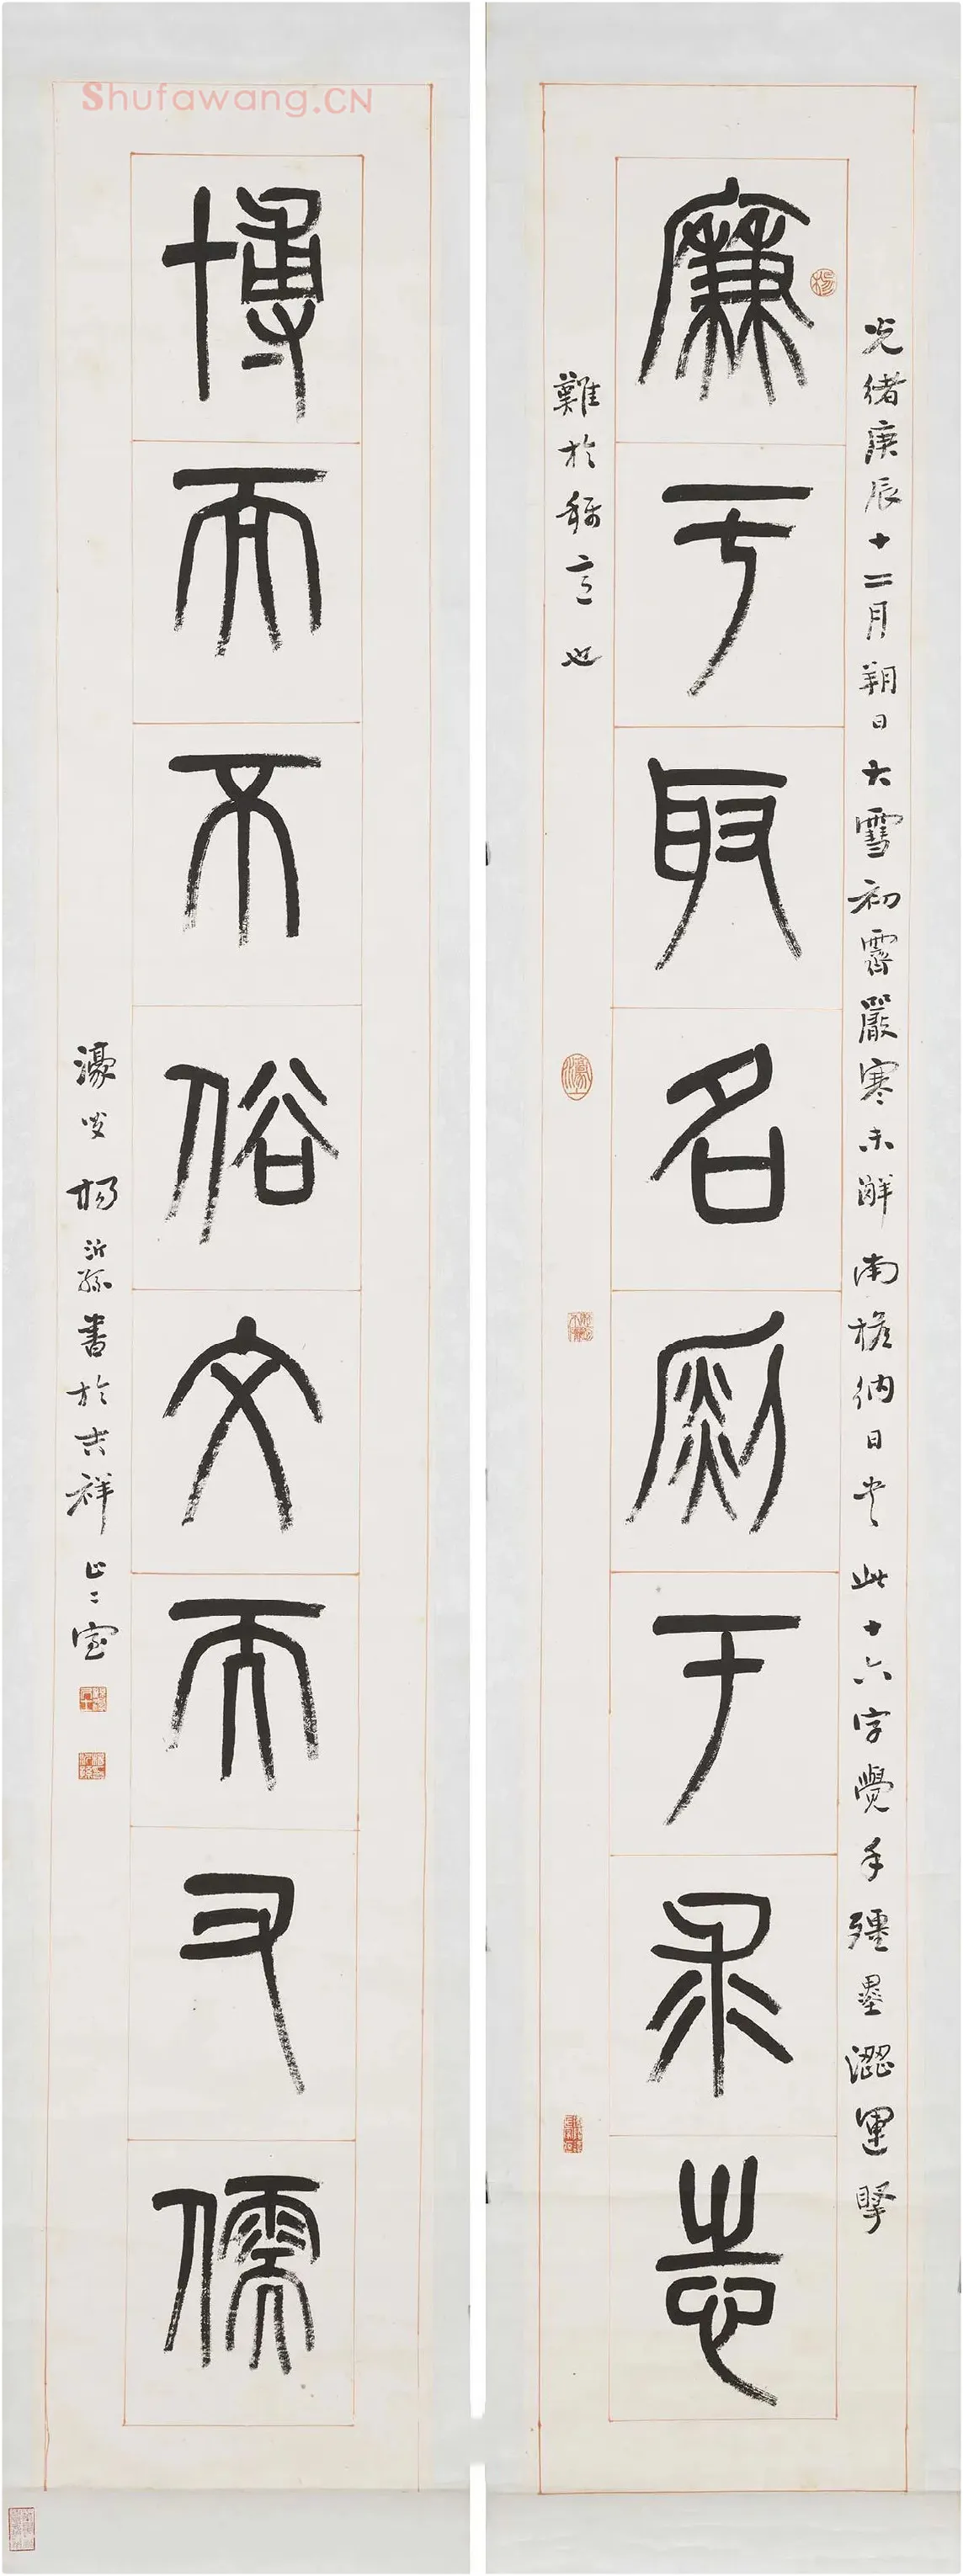 光緒庚辰十二月朔日大雪初霽嚴寒未解南檐納日書此十六字覺手殭墨澀運擘
廉于取名㓹于求志
難於稱意也
博而不俗文而又儒
濠叟楊沂孫書於吉祥止二室
Shufawang.CN